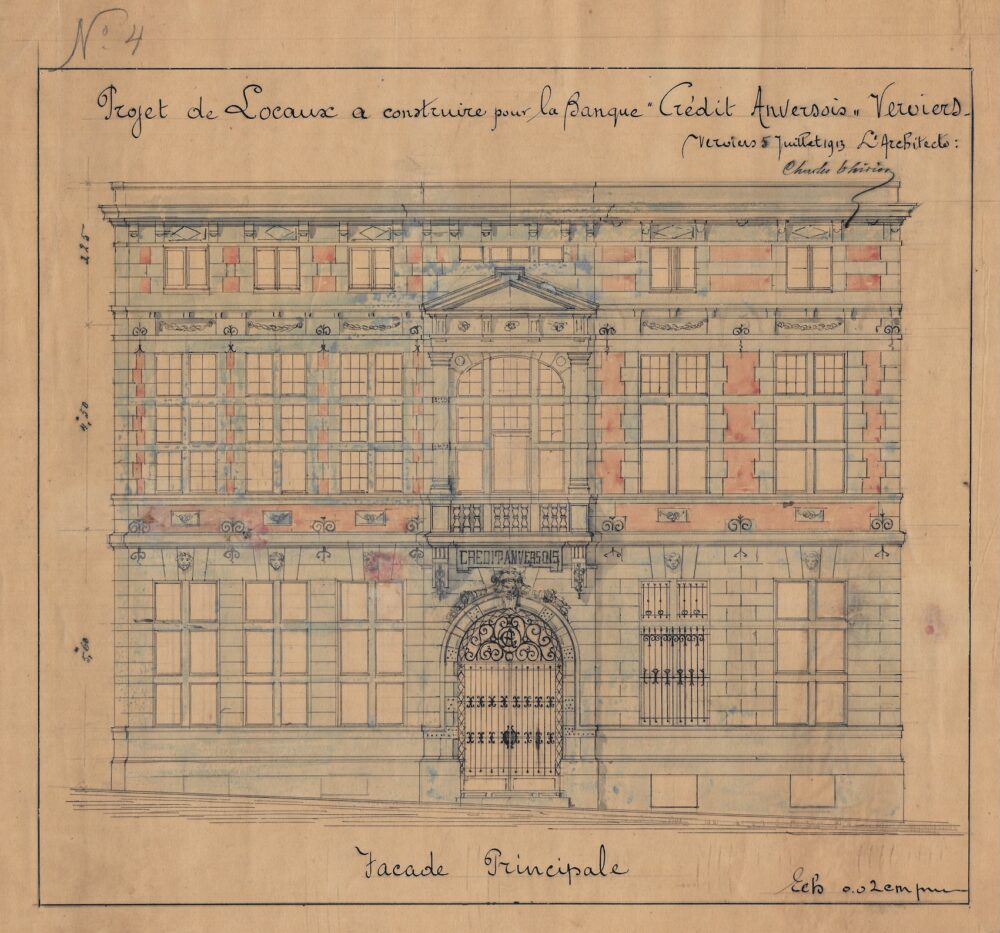 N° 4
Projet de Locaux a construire pour la Banque "Crédit Anversois" Verviers
Verviers 5 Juillet 1913 L'Architecte :
Charles Thirion
2,25
4,50
5,00
CREDIT ANVERSOIS
CA
Facade Principale
Ech 0.02cm pm